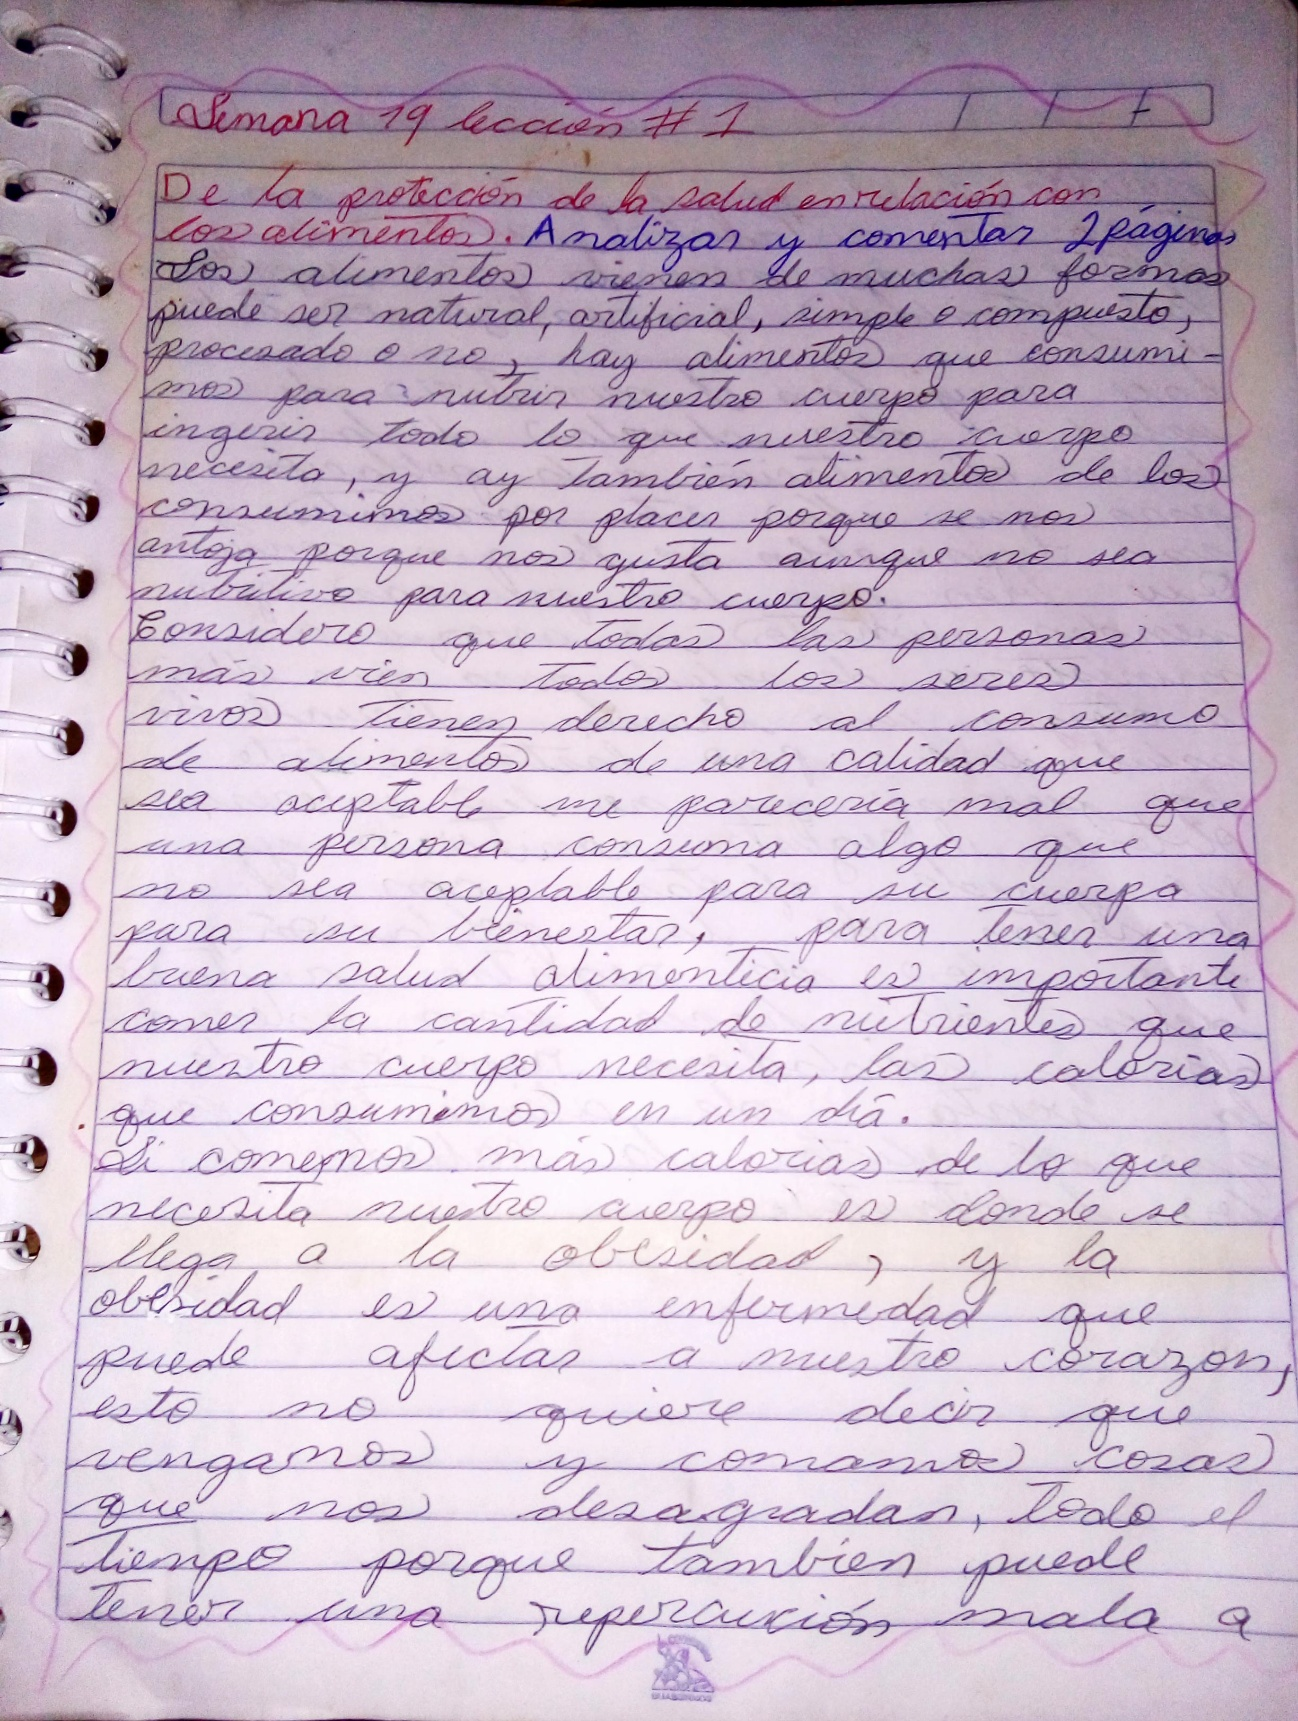 Semana 19 lección # 1
De la protección de la salud en relación con
los alimentos. Analizar y comentar 2 páginas
Los alimentos vienen de muchas formas
puede ser natural, artificial, simple o compuesto,
procesado o no, hay alimentos que consumi-
mos para nutrir nuestro cuerpo para
ingerir todo lo que nuestro cuerpo
necesita, y ay también alimentos de los
consumimos por placer porque se nos
antoja porque nos gusta aunque no sea
nutritivo para nuestro cuerpo.
Considero que todas las personas
más vien todos los seres
vivos tienen derecho al consumo
de alimentos de una calidad que
sea aceptable me parecería mal que
una persona consuma algo que
no sea aceptable para su cuerpo
para su bienestar, para tener una
buena salud alimenticia es importante
comer la cantidad de nutrientes que
nuestro cuerpo necesita, las calorías
que consumimos en un día.
Si comemos más calorias de lo que
necesita nuestro cuerpo es donde se
llega a la obesidad, y la
obesidad es una enfermedad que
puede afectar a nuestro corazon,
esto no quiere decir que
vengamos y comamos cosas
que nos desagradan, todo el
tiempo porque tambien puede
tener una repercución mala a